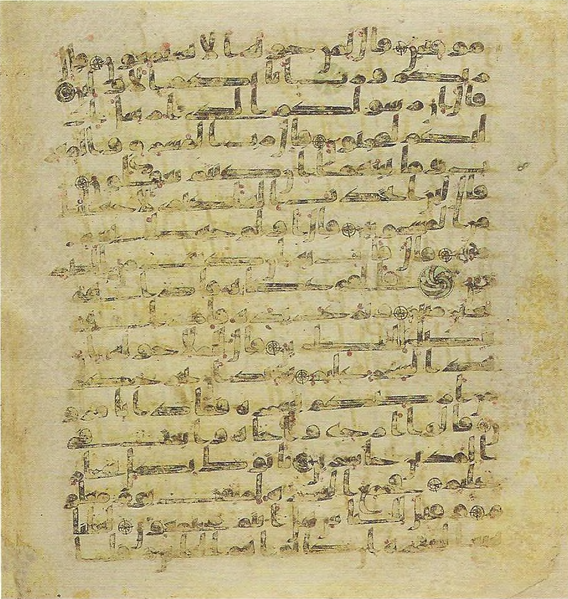 موقنين قال لمن حوله الا تستمعون قال
ربكم ورب ابائكم الاولين
قال ان رسولكم الذي ارسل
اليكم لمجنون قال رب المشرق والمغر
ب وما بينهما ان كنتم تعقلون
قال لئن اتخذت الها غيري لاجعلنك
من المسجونين قال اولو جئتك بشي
مبين قال فات به ان كنت من الصد
قين فالقى عصاه فاذا هي ثعبان
مبين ونزع يده فاذا هي بيضا
للنظرين قال للملا حوله ان
هذا لسحر عليم يريد ان يخر
جكم من ارضكم بسحره فماذا تا
مرون قالوا ارجه واخاه وابعث في
المدائن حشرين ياتوك بكل سحار
عليم فجمع السحرة لميقت يوم معلو
م وقيل للناس هل انتم مجتمعون
لعلنا نتبع السحرة ان كانوا